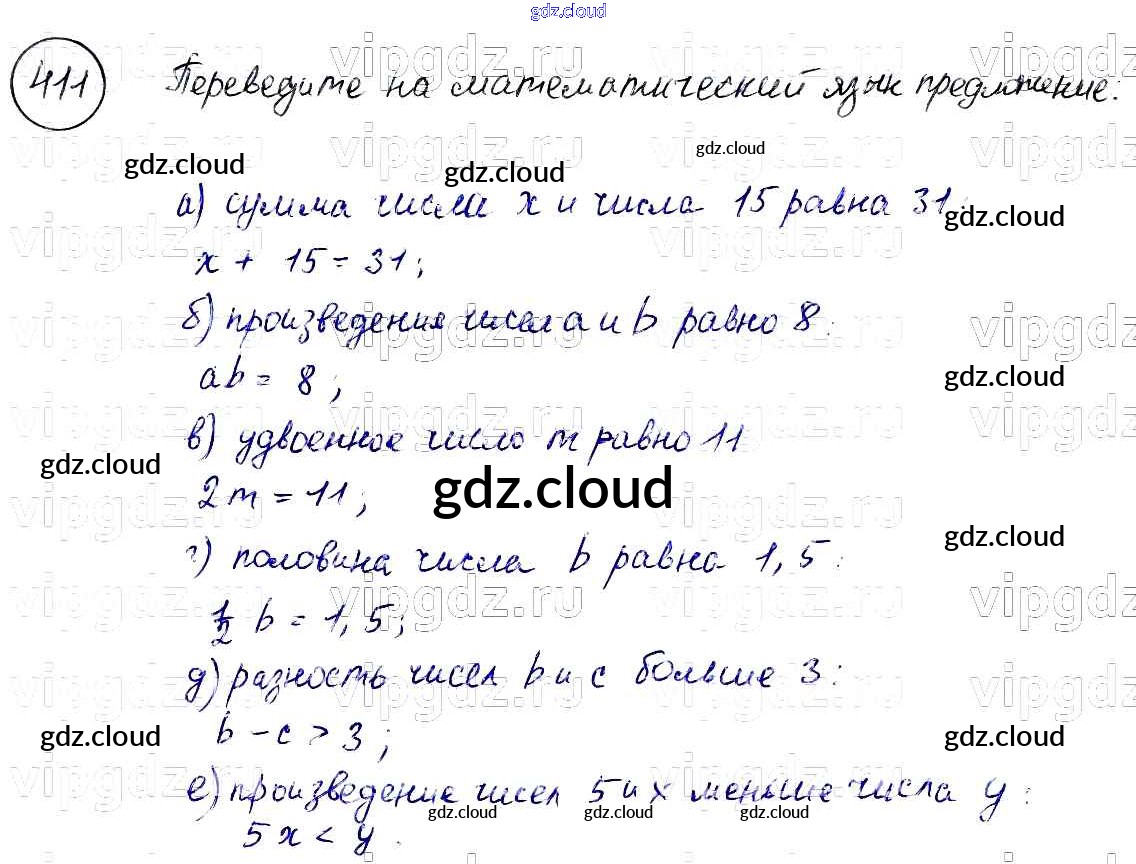 gdz.cloud
411 Переведите на математический язык предложение:
vipgdz.ru vipgdz.ru vipgdz.ru vipgdz
gdz.cloud gdz.cloud gdz.cloud
а) сумма числа x и числа 15 равна 31:
gdz.cloud
x + 15 = 31;
б) произведения чисел a и b равно 8:
ab = 8;
gdz.cloud
в) удвоенное число m равно 11
gdz.cloud
2m = 11;
gdz.cloud
gdz.cloud
г) половина числа b равна 1,5:
1/2 b = 1,5;
д) разность чисел b и c больше 3:
b - c > 3;
gdz.cloud gdz.cloud
е) произведение чисел 5 и x меньше числа y:
gdz.cloud gdz.cloud gdz.cloud
5x < y.